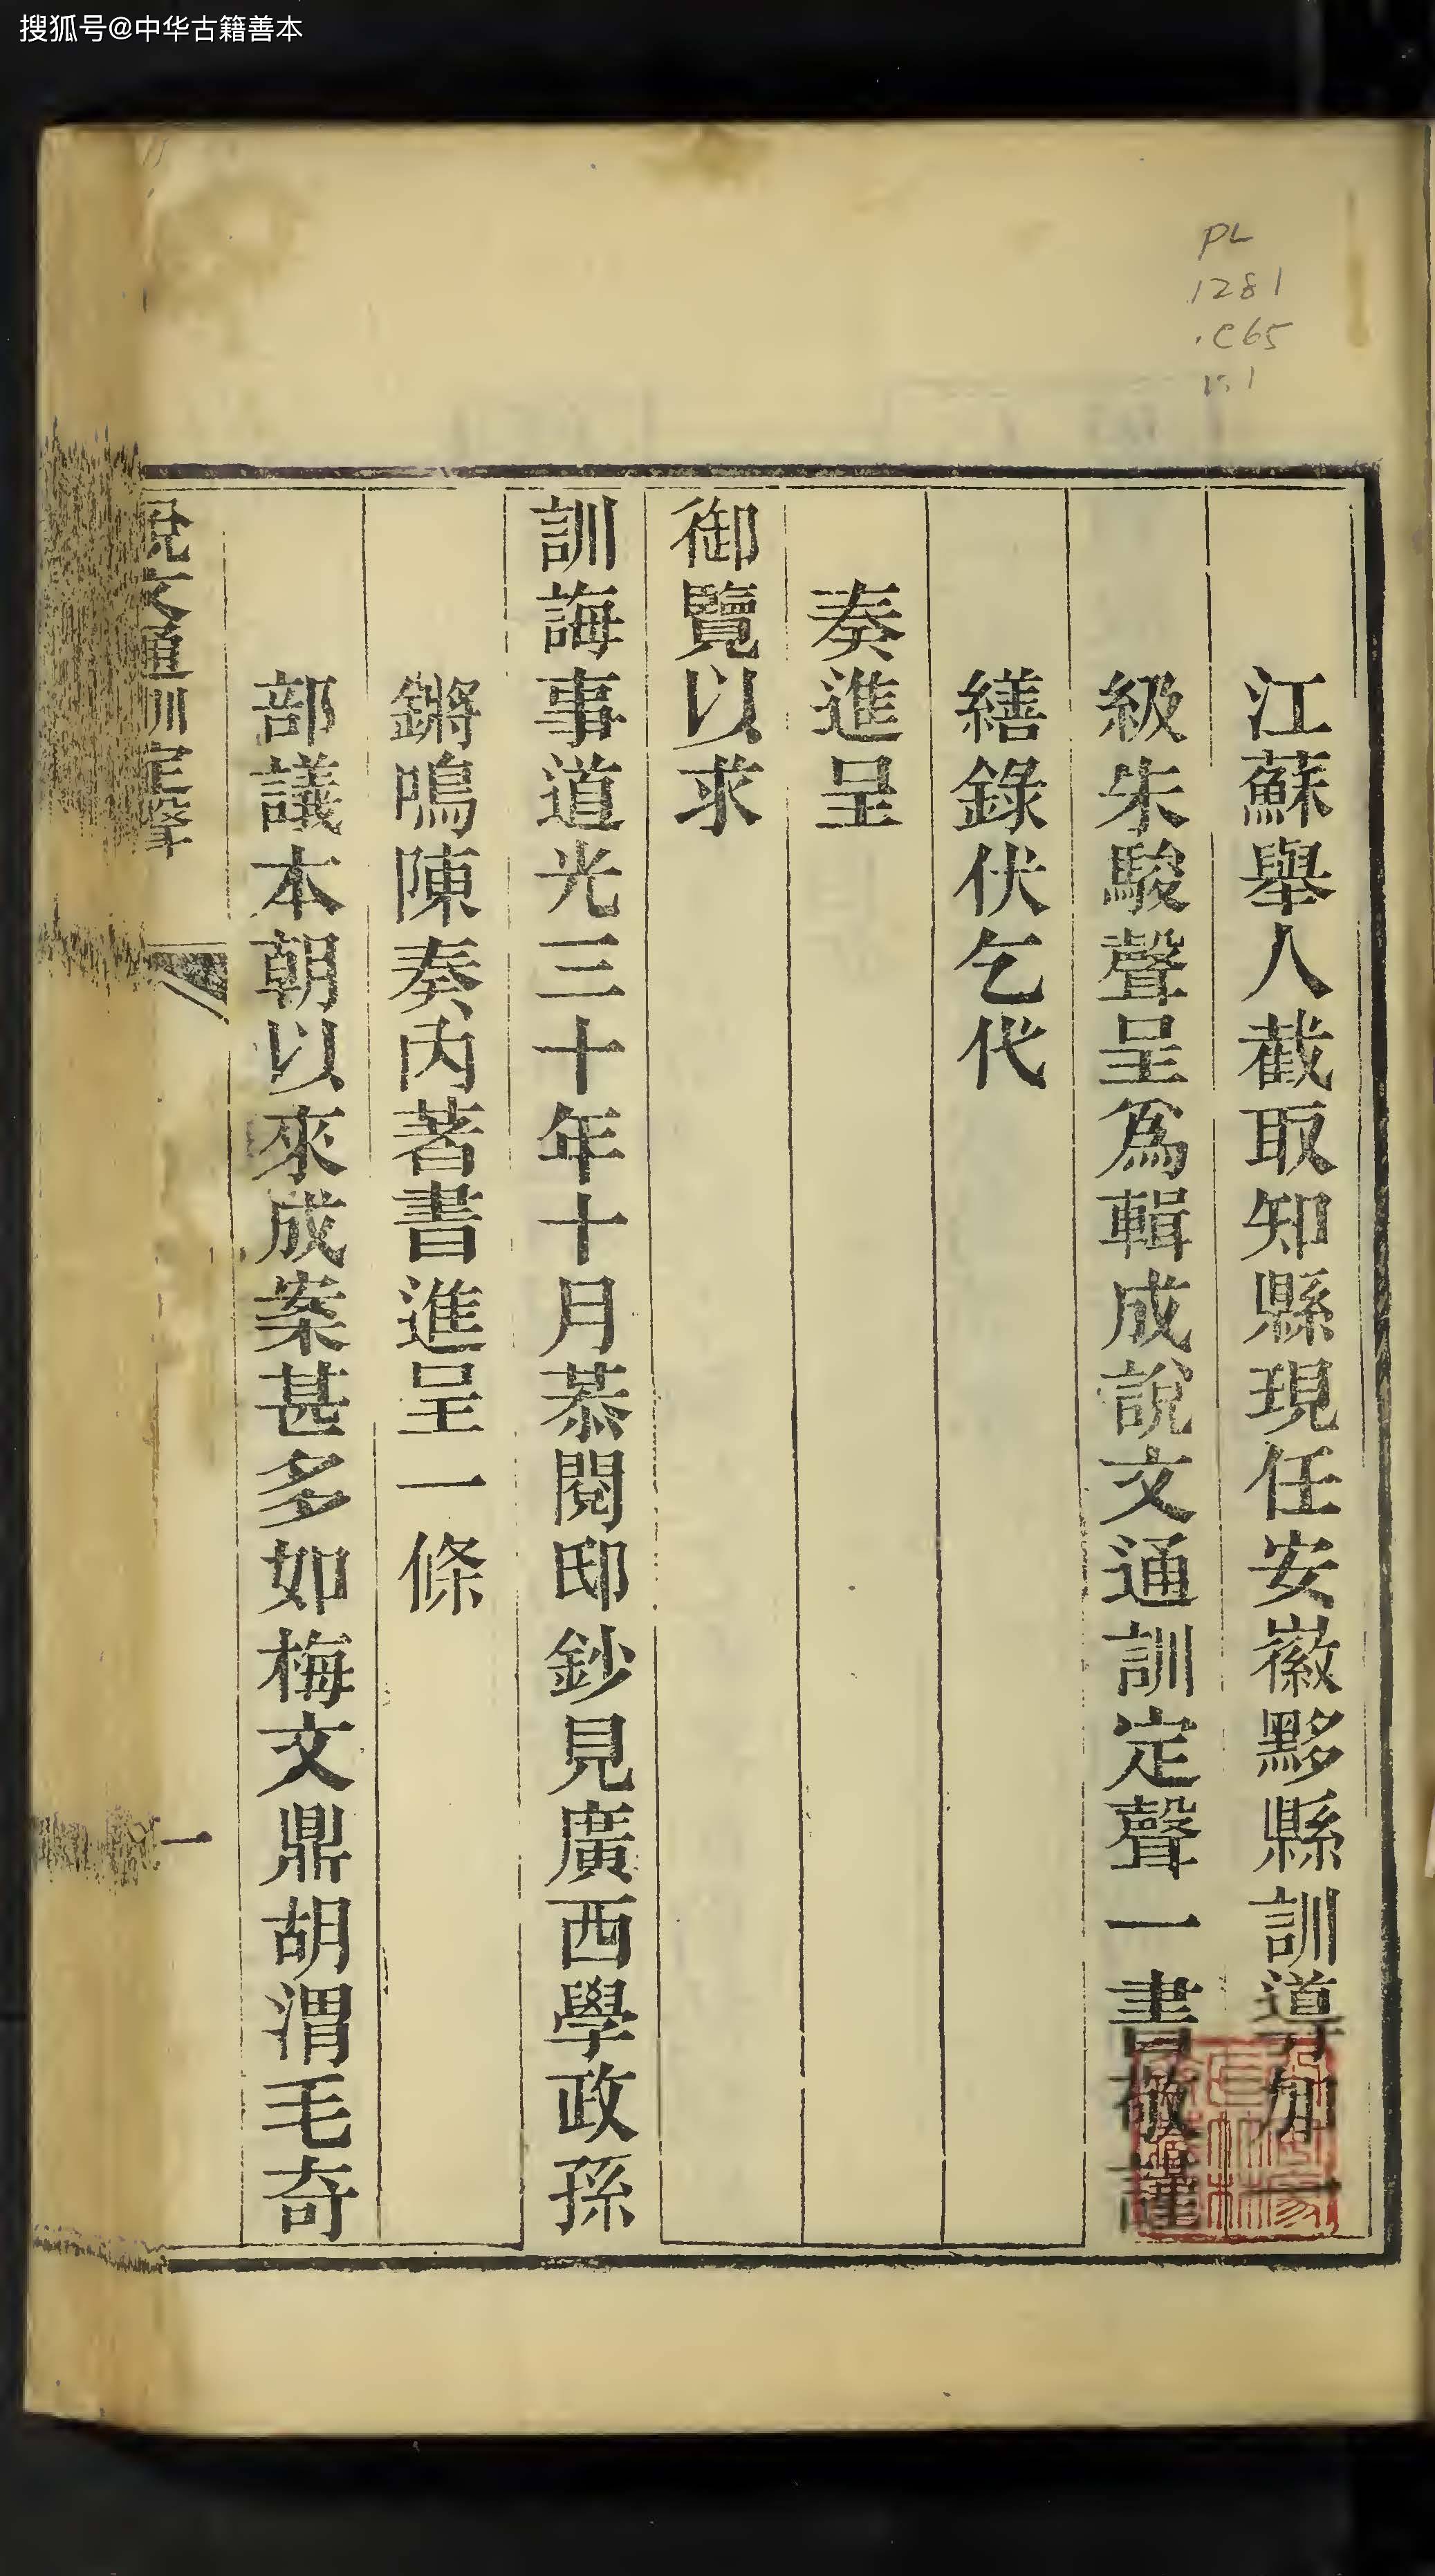 搜狐号@中华古籍善本
PL
1281
.C65
v.1
江蘇舉人截取知縣現任安徽黟縣訓導加一
級朱駿聲呈爲輯成說文通訓定聲一書敬謹
繕錄伏乞代
奏進呈
御覽以求
訓誨事道光三十年十月恭閱邸鈔見廣西學政孫
鏘鳴陳奏內著書進呈一條
部議本朝以來成案甚多如梅文鼎胡渭毛奇
說文通訓定聲
一